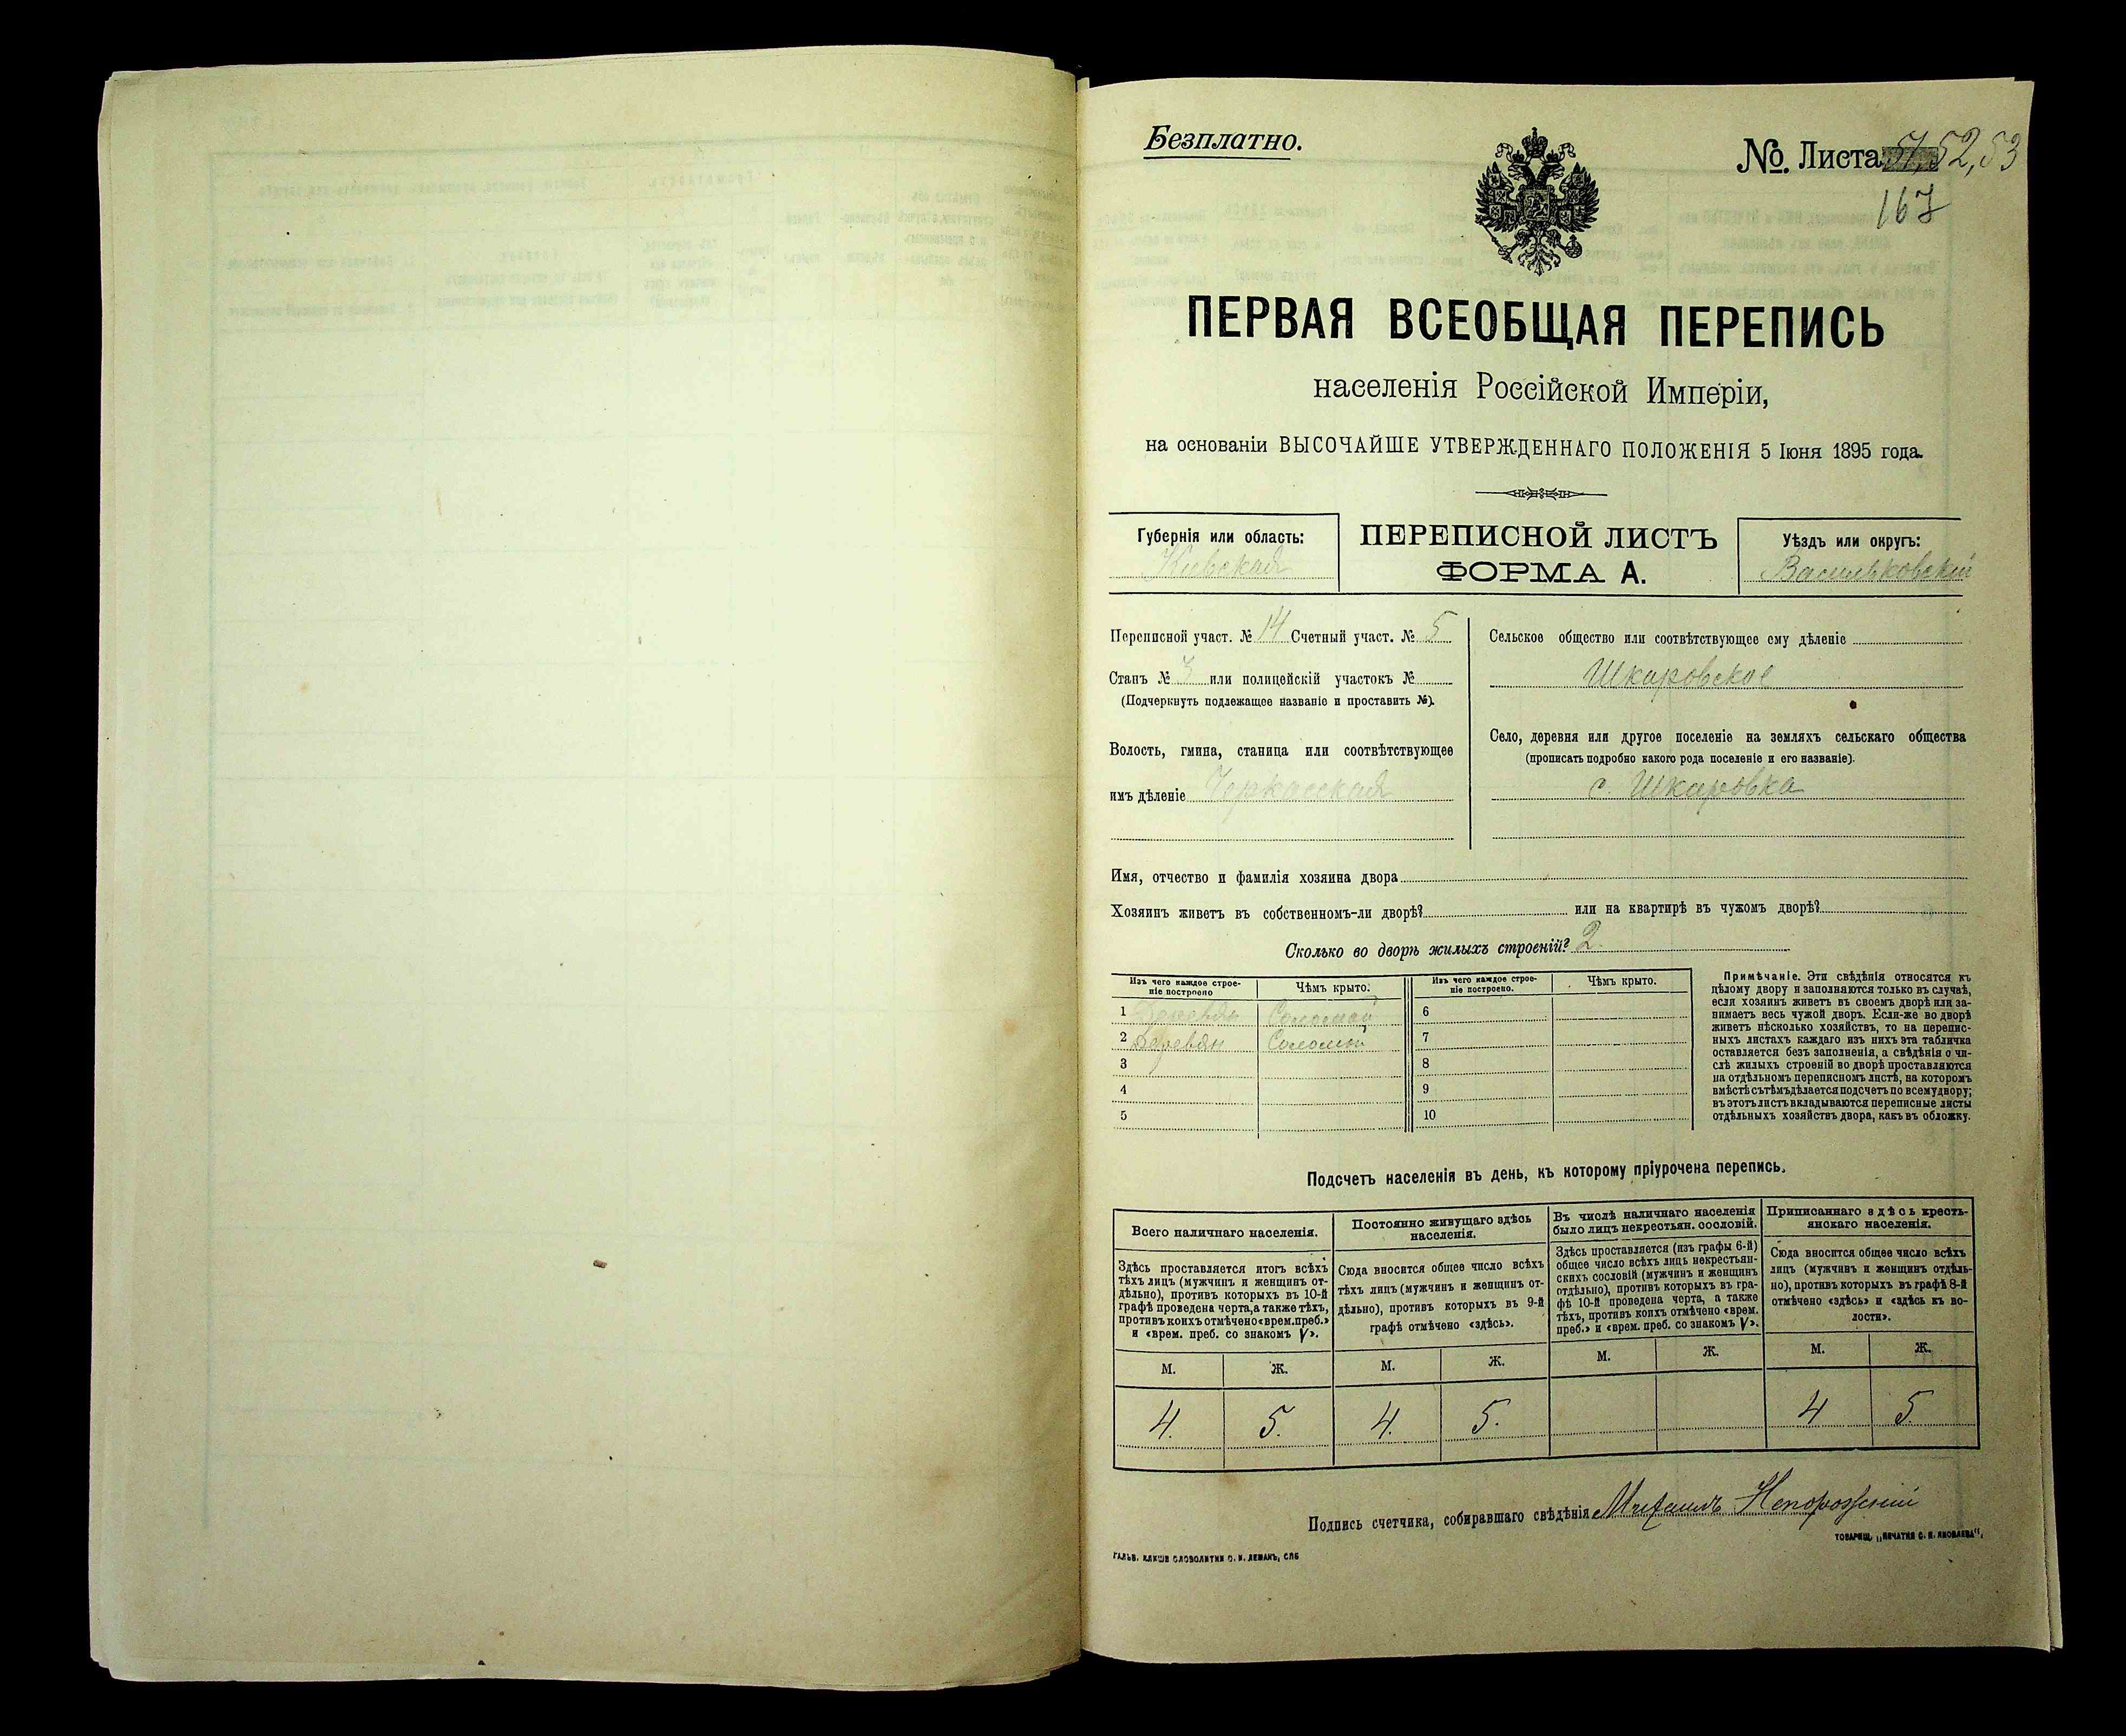 Безплатно.
№. Листа 51, 52, 53
167
ПЕРВАЯ ВСЕОБЩАЯ ПЕРЕПИСЬ
населенія Россійской Имперіи,
на основаніи ВЫСОЧАЙШЕ УТВЕРЖДЕННАГО ПОЛОЖЕНІЯ 5 Іюня 1895 года.
Губернія или область:
Кіевская
ПЕРЕПИСНОЙ ЛИСТЪ
ФОРМА А.
Уѣздъ или округъ:
Васильковскій
Переписной участ. № 14 Счетный участ. № 5
Станъ № 3 или полицейскій участокъ №
(Подчеркнуть подлежащее названіе и проставить №).
Волость, гмина, станица или соотвѣтствующее
имъ дѣленіе Черкасская
Сельское общество или соотвѣтствующее ему дѣленіе
Шкаровское
Село, деревня или другое поселеніе на земляхъ сельскаго общества
(прописать подробно какого рода поселеніе и его названіе).
с. Шкаровка
Имя, отчество и фамилія хозяина двора
Хозяинъ живетъ въ собственномъ-ли дворѣ? или на квартирѣ въ чужомъ дворѣ?
Сколько во дворѣ жилыхъ строеній? 2
Изъ чего каждое строе-
ніе построено
Чѣмъ крыто.
Изъ чего каждое строе-
ніе построено.
Чѣмъ крыто.
1 Деревян Соломой 6
2 Деревян Соломой 7
3 8
4 9
5 10
Примѣчаніе. Эти свѣдѣнія относятся къ
цѣлому двору и заполняются только въ случаѣ,
если хозяинъ живетъ въ своемъ дворѣ или за-
нимаетъ весь чужой дворъ. Если-же во дворѣ
живетъ нѣсколько хозяйствъ, то на перепис-
ныхъ листахъ каждаго изъ нихъ эта табличка
оставляется безъ заполненія, а свѣдѣнія о чи-
слѣ жилыхъ строеній во дворѣ проставляются
на отдѣльномъ переписномъ листѣ, на которомъ
вмѣстѣ съ тѣмъ дѣлается подсчетъ по всему двору;
въ этотъ листъ вкладываются переписные листы
отдѣльныхъ хозяйствъ двора, какъ въ обложку.
Подсчетъ населенія въ день, къ которому пріурочена перепись.
Всего наличнаго населенія.
Здѣсь проставляется итогъ всѣхъ
тѣхъ лицъ (мужчинъ и женщинъ от-
дѣльно), противъ которыхъ въ 10-й
графѣ проведена черта, а также тѣхъ,
противъ коихъ отмѣчено «врем. преб.»
и «врем. преб. со знакомъ V».
Постоянно живущаго здѣсь
населенія.
Сюда вносится общее число всѣхъ
тѣхъ лицъ (мужчинъ и женщинъ от-
дѣльно), противъ которыхъ въ 9-й
графѣ отмѣчено «здѣсь».
Въ числѣ наличнаго населенія
было лицъ некрестьян. сословій.
Здѣсь проставляется (изъ графы 6-й)
общее число всѣхъ лицъ некрестьян-
скихъ сословій (мужчинъ и женщинъ
отдѣльно), противъ которыхъ въ гра-
фѣ 10-й проведена черта, а также
тѣхъ, противъ коихъ отмѣчено «врем.
преб.» и «врем. преб. со знакомъ V».
Приписаннаго здѣсь кресть-
янскаго населенія.
Сюда вносится общее число всѣхъ
лицъ (мужчинъ и женщинъ отдѣль-
но), противъ которыхъ въ графѣ 8-й
отмѣчено «здѣсь» и «здѣсь къ во-
лости».
М. Ж. М. Ж. М. Ж. М. Ж.
4. 5. 4. 5. 4 5.
Подпись счетчика, собиравшаго свѣдѣнія Михаилъ Непорожній
ТОВАРИЩ. „ПЕЧАТНЯ С. П. ЯКОВЛЕВА“.
ГАЛЬВ. КЛИШЕ СЛОВОЛИТНИ О. И. ЛЕМАНЪ, СПБ